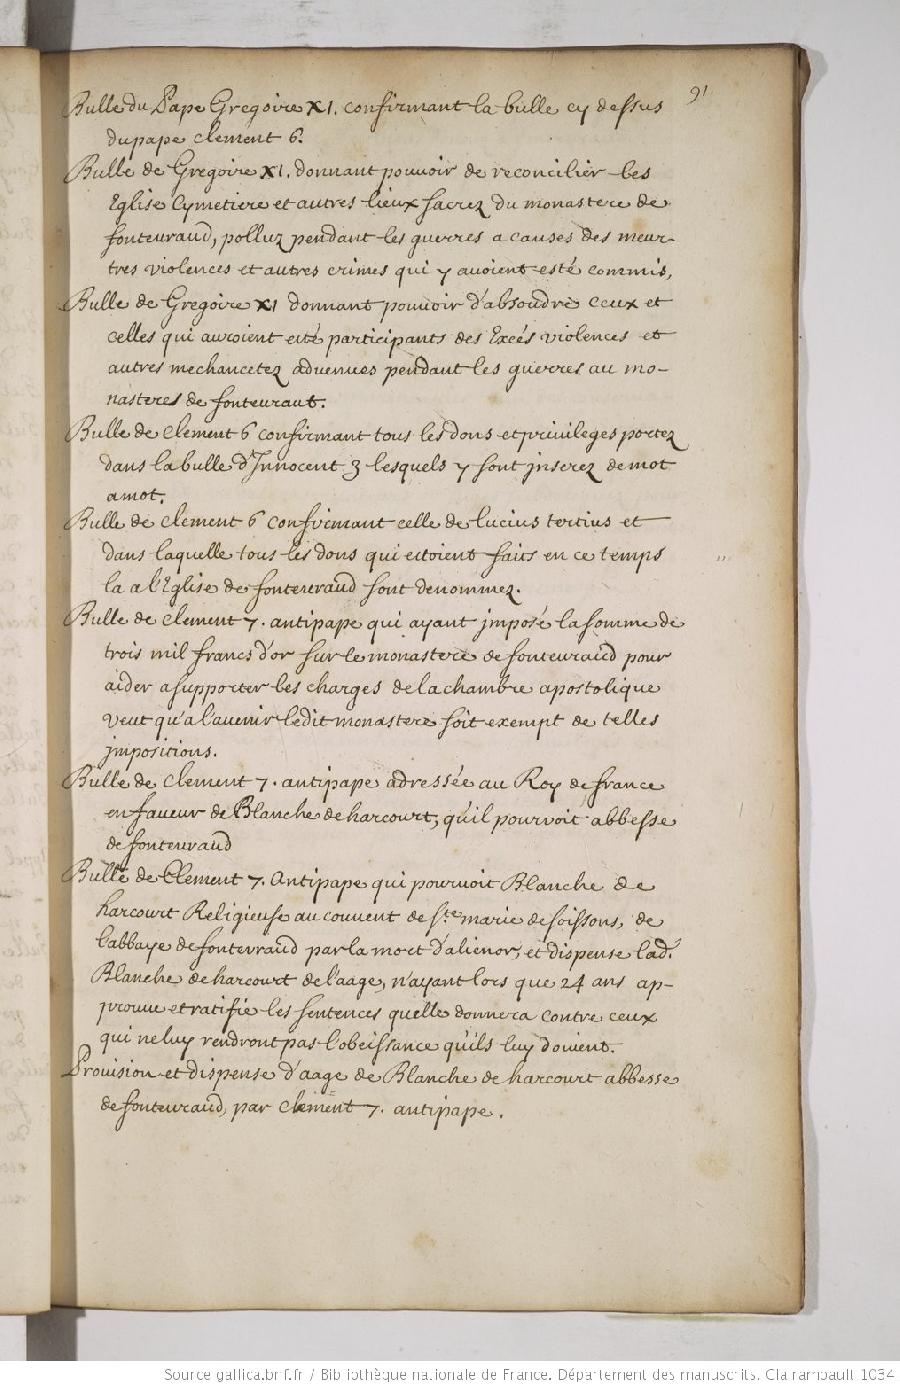 91
Bulle du Pape Gregoire XI. confirmant la bulle cy dessus
du pape clement 6.
Bulle de Gregoire XI. donnant pouvoir de reconcilier les
Eglise Cymetiere et autres lieux sacrez du monastere de
fonteuraud, polluz pendant les guerres a causes des meur-
tres violences et autres crimes qui y avoient esté commis,
Bulle de Gregoire XI donnant pouvoir d'absoudre ceux et
celles qui auroient eité participants des Excés violences et
autres mechancetez advenues pendant les guerres au mo-
nasteres de fonteuraut.
Bulle de clement 6 confirmant tous les dons et privileges portez
dans la bulle d'Innocent 3 lesquels y sont jnserez de mot
a mot.
Bulle de clement 6 confirmant celle de lucius tertius et
dans laquelle tous les dons qui estoient faits en ce temps
la a l'Eglise de fonteuraud sont denommez.
Bulle de clement 7. antipape qui ayant jmposé la somme de
trois mil francs d'or sur le monastere de fonteuraud pour
aider a supporter les charges de la chambre apostolique
veut qu'a l'avenir ledit monastere soit exempt de telles
jmpositions.
Bulle de clement 7. antipape adressée au Roy de france
en faveur de Blanche de harcourt, qu'il pourvoit abbesse
de fonteuraud
Bulle de Clement 7. Antipape qui pourvoit Blanche de
harcourt Religieuse au couvent de Ste marie de soissons, de
l'abbaye de fontevraud par la mort d'alienor, et dispense lad.
Blanche de harcourt de l'aage, n'ayant lors que 24 ans ap-
prouve et ratifie les sentences quelle donnera contre ceux
qui ne luy rendront pas l'obeissance qu'ils luy doivent.
Provision et dispense d'aage de Blanche de harcourt abbesse
de fonteuraud, par Clement 7. antipape.
Source gallica.bnf.fr / Bibliothèque nationale de France. Département des manuscrits. Clairambault 1034